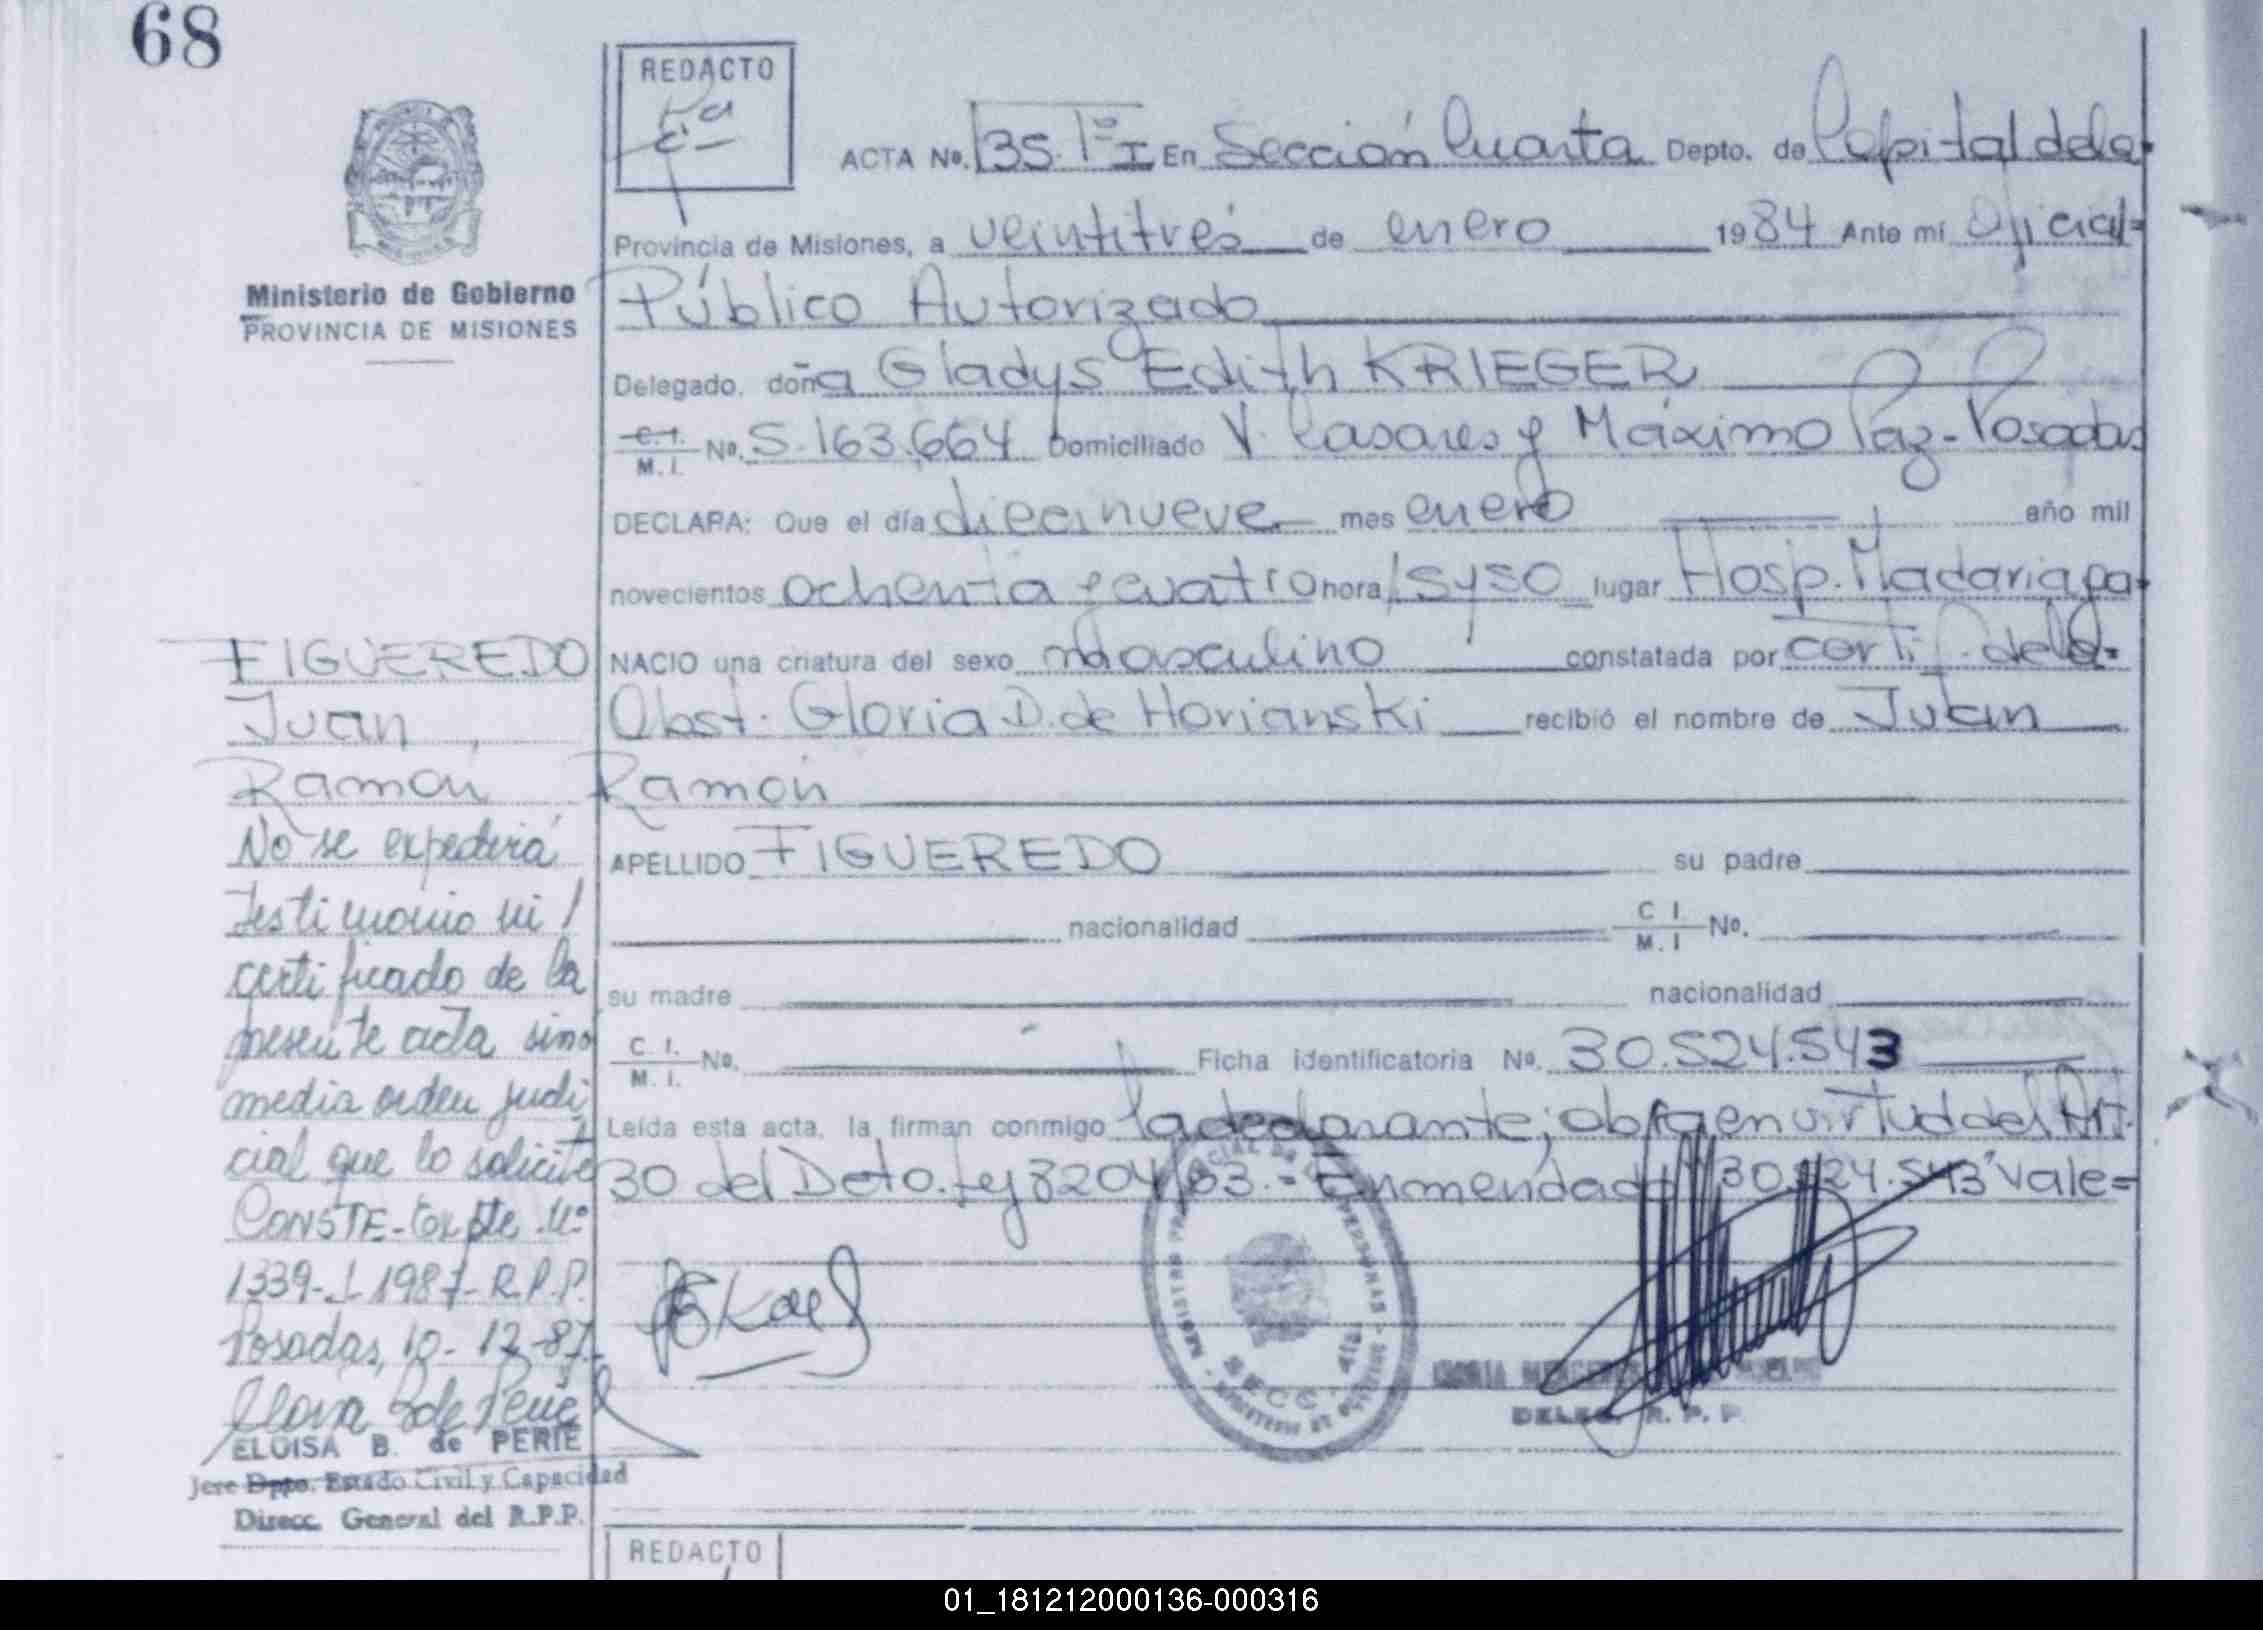 68
REDACTO
ACTA No. 35. Tº I En Sección Cuarta Depto. de Capital de la
Provincia de Misiones, a veintitrés de enero 1984 Ante mí Oficial=
Público Autorizado
Delegado, doña Gladys Edith KRIEGER
C.I. M.I. No. 5.163.664 Domiciliado V. Casares y Máximo Paz-Posadas
DECLARA: Que el día diecinueve mes enero año mil
novecientos ochenta y cuatro hora 15y50 lugar Hosp. Madariaga
NACIO una criatura del sexo Masculino constatada por certif. de la=
Obst. Gloria D. de Horianski recibió el nombre de Juan
Ramón
APELLIDO FIGUEREDO su padre
nacionalidad C I. M. I No.
su madre nacionalidad
C. I. M. I. No. Ficha identificatoria No. 30.524.543
Leída esta acta, la firman conmigo la declarante; obra en virtud del Art.
30 del Dcto. Ley 8204/63.- Enmendado "30.524.543" Vale=
DELEG. R. P. P.
Ministerio de Gobierno
PROVINCIA DE MISIONES
FIGUEREDO
Juan
Ramón
No se expedirá
Testimonio ni
certificado de la
presente acta sino
media orden judi
cial que lo solicite
CONSTE-Expte Nº
1339-L 1987- R.P.P.
Posadas, 10-12-87.
ELOISA B. de PERIE
Jefe Dpto. Estado Civil y Capacidad
Direcc. General del R.P.P.
REDACTO
01_181212000136-000316